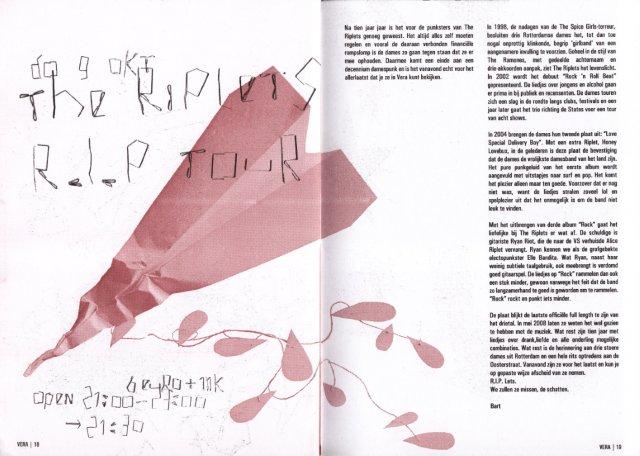 do 9 okt
The Riplets
R.I.P TOUR
6 euro + MK
open 21:00-03:00
→ 21:30
VERA | 18
Na tien jaar is het voor de punksters van The
Riplets genoeg geweest. Het altijd alles zelf moeten
regelen en vooral de daaraan verbonden financiële
rompslomp is de dames zo gaan tegen staan dat ze er
mee ophouden. Daarmee komt een einde aan een
decennium damespunk en is het vanavond echt voor het
allerlaatst dat je ze in Vera kunt bekijken.
In 1998, de nadagen van de The Spice Girls-terreur,
besluiten drie Rotterdamse dames het, tot dan toe
nogal onprettig klinkende, begrip 'girlband' van een
aangenamere invulling te voorzien. Geheel in de stijl van
The Ramones, met gedeelde achternaam en
drie-akkoorden aanpak, ziet The Riplets het levenslicht.
In 2002 wordt het debuut "Rock 'n Roll Beat"
gepresenteerd. De liedjes over jongens en alcohol gaan
er prima in bij publiek en recensenten. De dames touren
zich een slag in de rondte langs clubs, festivals en een
jaar later gaat het trio richting de States voor een tour
van acht shows.
In 2004 brengen de dames hun tweede plaat uit: "Love
Special Delivery Boy". Met een extra Riplet, Honey
Lovebux, in de gelederen is deze plaat de bevestiging
dat de dames de vrolijkste damesband van het land zijn.
Het pure punkgeluid van het eerste album wordt
aangevuld met uitstapjes naar surf en pop. Het komt
het plezier alleen maar ten goede. Voorzover dat er nog
niet was, want de liedjes stralen zoveel lol en
spelplezier uit dat het onmogelijk is om de band niet
leuk te vinden.
Met het uitbrengen van derde album "Rock" gaat het
liefelijke bij The Riplets er wat af. De schuldige is
gitariste Ryan Riot, die de naar de VS verhuisde Alice
Riplet vervangt. Ryan kennen we als de grofgebekte
electropunkster Elle Bandita. Wat Ryan, naast haar
weinig subtiele taalgebruik, ook meebrengt is verdomd
goed gitaarspel. De liedjes op "Rock" rammelen dan ook
een stuk minder, gewoon vanwege het feit dat de band
zo langzamerhand te goed is geworden om te rammelen.
"Rock" rockt en punkt iets minder.
De plaat blijkt de laatste officiële full length te zijn van
het drietal. In mei 2008 laten ze weten het wel gezien
te hebben met de muziek. Wat rest zijn tien jaar met
liedjes over drank,liefde en alle onderling mogelijke
combinaties. Wat rest is de herinnering aan drie stoere
dames uit Rotterdam en een hele rits optredens aan de
Oosterstraat. Vanavond zijn ze voor het laatst en kun je
op gepaste wijze afscheid van ze nemen.
R.I.P. Lets.
We zullen ze missen, de schatten.
Bart
VERA | 19